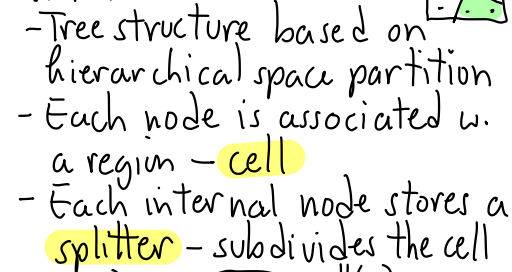 - Tree structure based on
hierarchical space partition
- Each node is associated w.
a region - cell
- Each internal node stores a
splitter - subdivides the cell